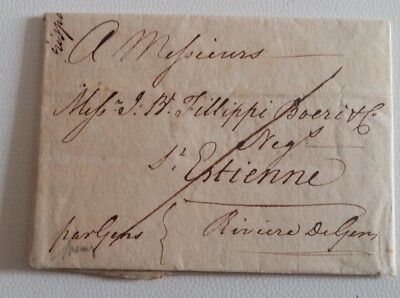 A Messieurs
Mess.rs J. Bt. Fillippi Boeri & Cº
Negts
St Estienne
par Gens { Riviere De Genes